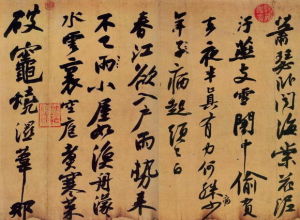 蕭瑟卧聞海棠花泥
汙燕支雪闇中偷負
去夜半真有力何殊少
年子病起頭已白
春江欲入戶雨勢來
不已雨小屋如漁舟濛
水雲裏空庖煮寒菜
破竈燒濕葦那